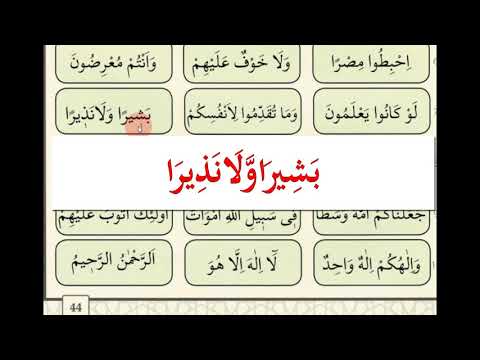 اِحْبِطُوا مِصْرًا وَلَا خَوْفٌ عَلَيْهِمْ وَاَنْتُمْ مُعْرِضُونَ
لَوْ كَانُوا يَعْلَمُونَ وَمَا تُقَدِّمُوا لِاَنْفُسِكُمْ بَشِيرًا وَلَا نَذِيرًا
بَشِيرَاوَّلَانَذِيرَا
جَعَلْنَاكُمْ اُمَّةً وَسَطًا فِى سَبِيلِ اللّٰهِ اَمْوَاتٌ اُولٰئِكَ اَتُوبُ عَلَيْهِمْ
وَاِلٰهُكُمْ اِلٰهٌ وَاحِدٌ لَٓا اِلٰهَ اِلَّا هُوَ اَلرَّحْمٰنُ الرَّحٖيمُ
44